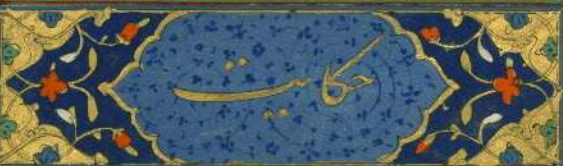 حکایت